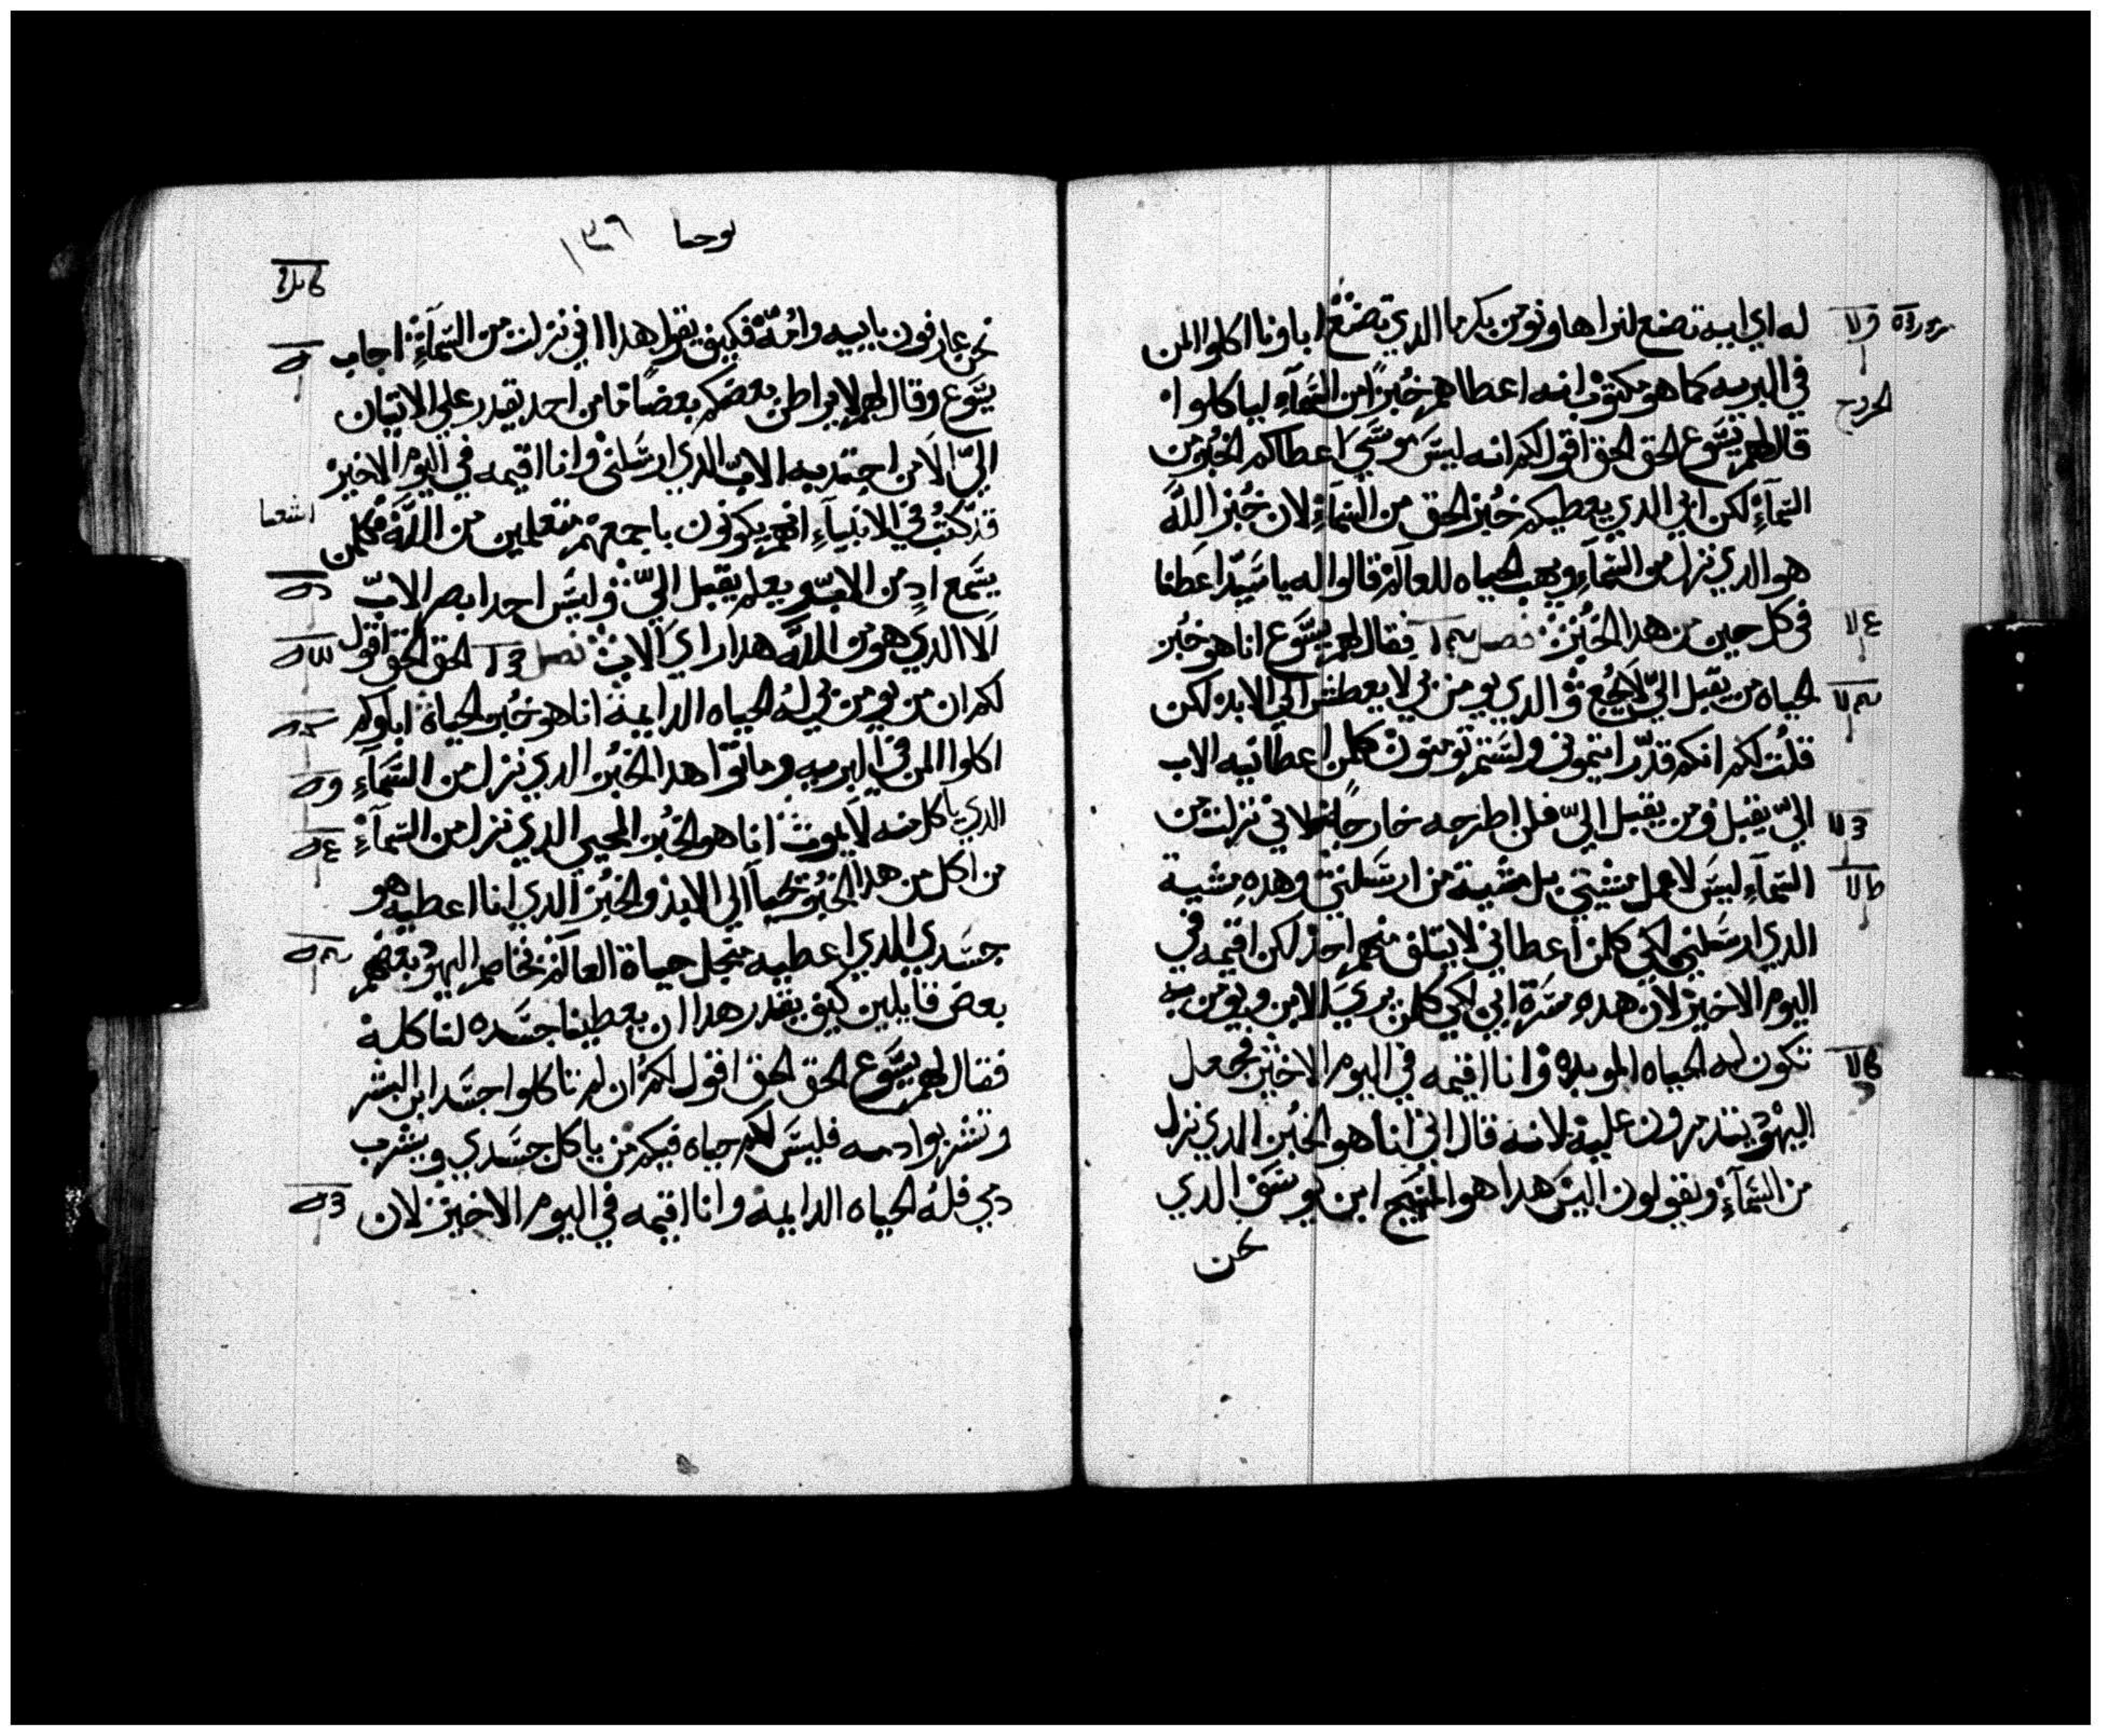 له اي ايه تصنع لنراها ونومن بك ما الدي تصنع اباونا اكلوا المن
في البريه كما هو مكتوب انه اعطاهم خبزًا من السَّمآءِ لياكلوا
قال لهم يسَوع الحق الحق اقول لكم انه ليسَ موسَي اعطاكم الخبز من
السَّمآءِ لكن ابي الدي يعطيكم خُبز الحق من السَّمآءِ لان خُبز اللَّه
هو الدي نزل من السَّمآءِ ويهب الحياه للعالم قالوا له يا سَيّد اعطنا
في كل حين من هدا الخبز فصل فقال لهم يسَوع انا هو خُبز
الحياه من يقبل اليّ لا يجُع والدي يومن بي لا يعطش الي الابد لكن
قلت لكم انكم قد رايتموني ولسَتم تومنون كلمن اعطانيه الاب
اليّ يقبل ومن يقبل اليّ فلن اطرحه خارجًا لاني نزلت من
السَّمآءِ ليسَ لاعمل مشيتي بل مشية من ارسَلني وهدهِ مشية
الدي ارسَلني لكي كلمن اعطاني لا يتلف منهم احد لكن اقيمه في
اليوم الاخير لان هده مسَرة ابي لكي كلمن يري الابن ويومن به
تكون له الحياه الموبده وانا اقيمه في اليوم الاخير فجعل
اليهود يتدمرون عليه لانه قال اني انا هو الخبز الدي نزل
من السَّمآءِ ويقولون اليسَ هدا هو ابن يوسَف الدي
نحن
الخروج
يوحنا ١٣٦
نحن عارفون بابيه وامُّه فكيف يقول هدا اني نزلت من السَّمآءِ اجاب
يسَّوع وقال لهم لا يراطن بعضكم بعضًا ما من احد يقدر علي الاتيان
اليّ الا من اجتدبه الابّ الدي ارسَلني وانا اقيمه في اليوم الاخير
قد كتبُ في الانبيآءِ انهم يكونون باجمعهم متعلمين من اللَّه فكلمن
يسَمع ادٍ من الابّ ويعلم يقبل اليّ وليسَ احد ابصر الابّ
الا الدي هو من اللَّه هدا راي الاب فصل الحق الحق اقول
لكم ان من يومن بي لهُ الحياه الدايمة انا هو خُبز الحياة اباوكم
اكلوا المن في البريه وماتوا هدا الخبُز الدي نزل من السَّمآءِ
الدي ياكل منه لا يموت انا هو الخبُز المحيي الدي نزل من السَّمآءِ
من اكل من هدا الخبُز يحيا الي الابد والخبُز الدي انا اعطيه هو
جسَدي الدي اعطيه منجل حياة العالم تخاصم اليهود بعضهم
بعض قايلين كيف يقدر هدا ان يعطينا جسَده لناكله
فقال لهم يسَّوع الحق الحق اقول لكم ان لم تاكلوا جسَد ابن البشر
وتشربوا دمه فليسَ لكم حياه فيكم من ياكل جسَدي ويشرب
دمي فلهُ الحياه الدايمة وانا اقيمه في اليوم الاخير لان
اشعيا